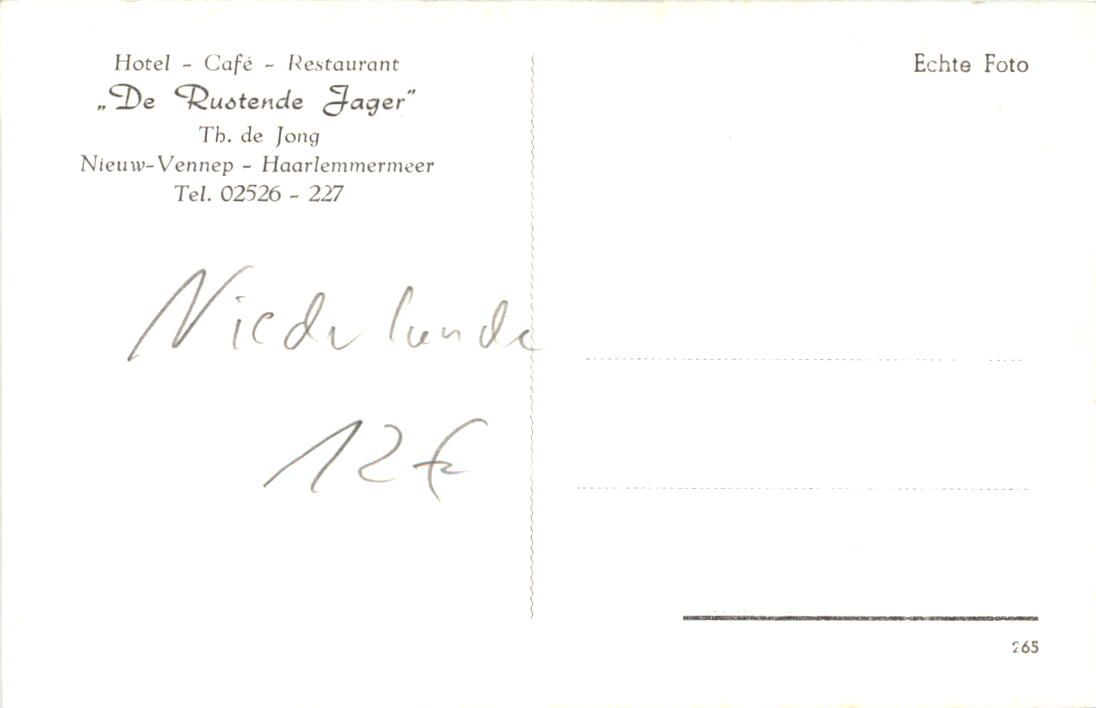 Hotel - Café - Restaurant
„De Rustende Jager”
Th. de Jong
Nieuw-Vennep - Haarlemmermeer
Tel. 02526 - 227
Echte Foto
Niederlande
12 €
265